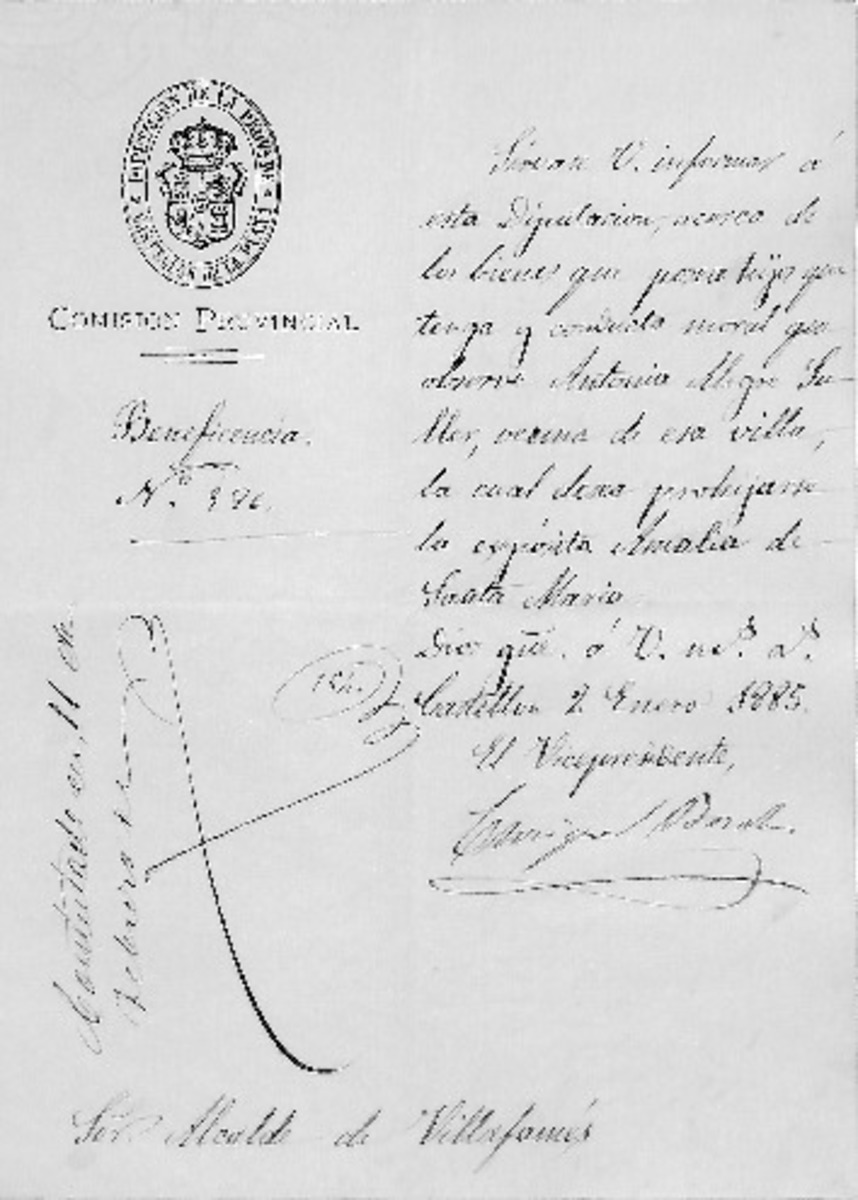 DIPUTACION DE LA PROVA DE
CASTELLON DE LA PLANA
COMISION PROVINCIAL
Beneficencia.
Nº
Sirvase V. informar á
esta Diputacion, acerca de
los bienes que posea hijos que
tenga y conducta moral que
observe Antonia Alegre Su-
ller, vecina de esa villa,
la cual desea prohijarse
la expósita Amalia de
Santa Maria.
Dios gūe. á V. ms. as.
Castellon 2 Enero 1885.
El Vicepresidente,
Contestado en 11 de
Febrero
Sor. Alcalde de Villafamés